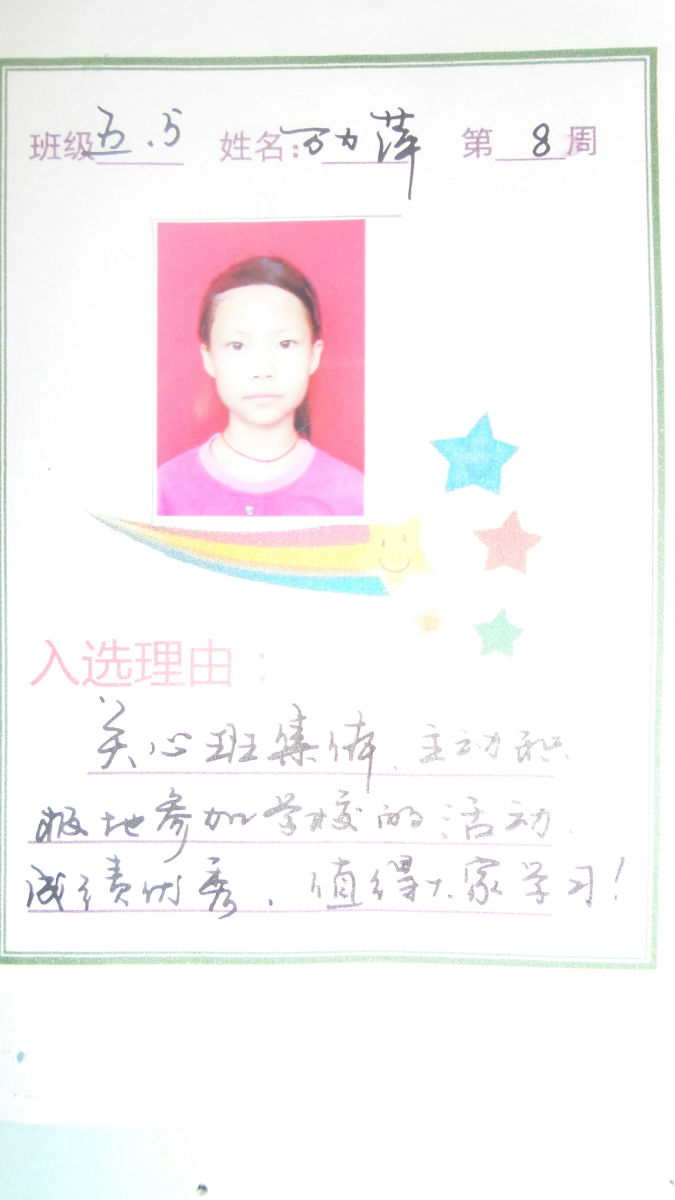 班级 五.5 姓名:万力萍 第 8 周
入选理由:
关心班集体、主动积
极地参加学校的活动.
成绩优秀.值得大家学习!